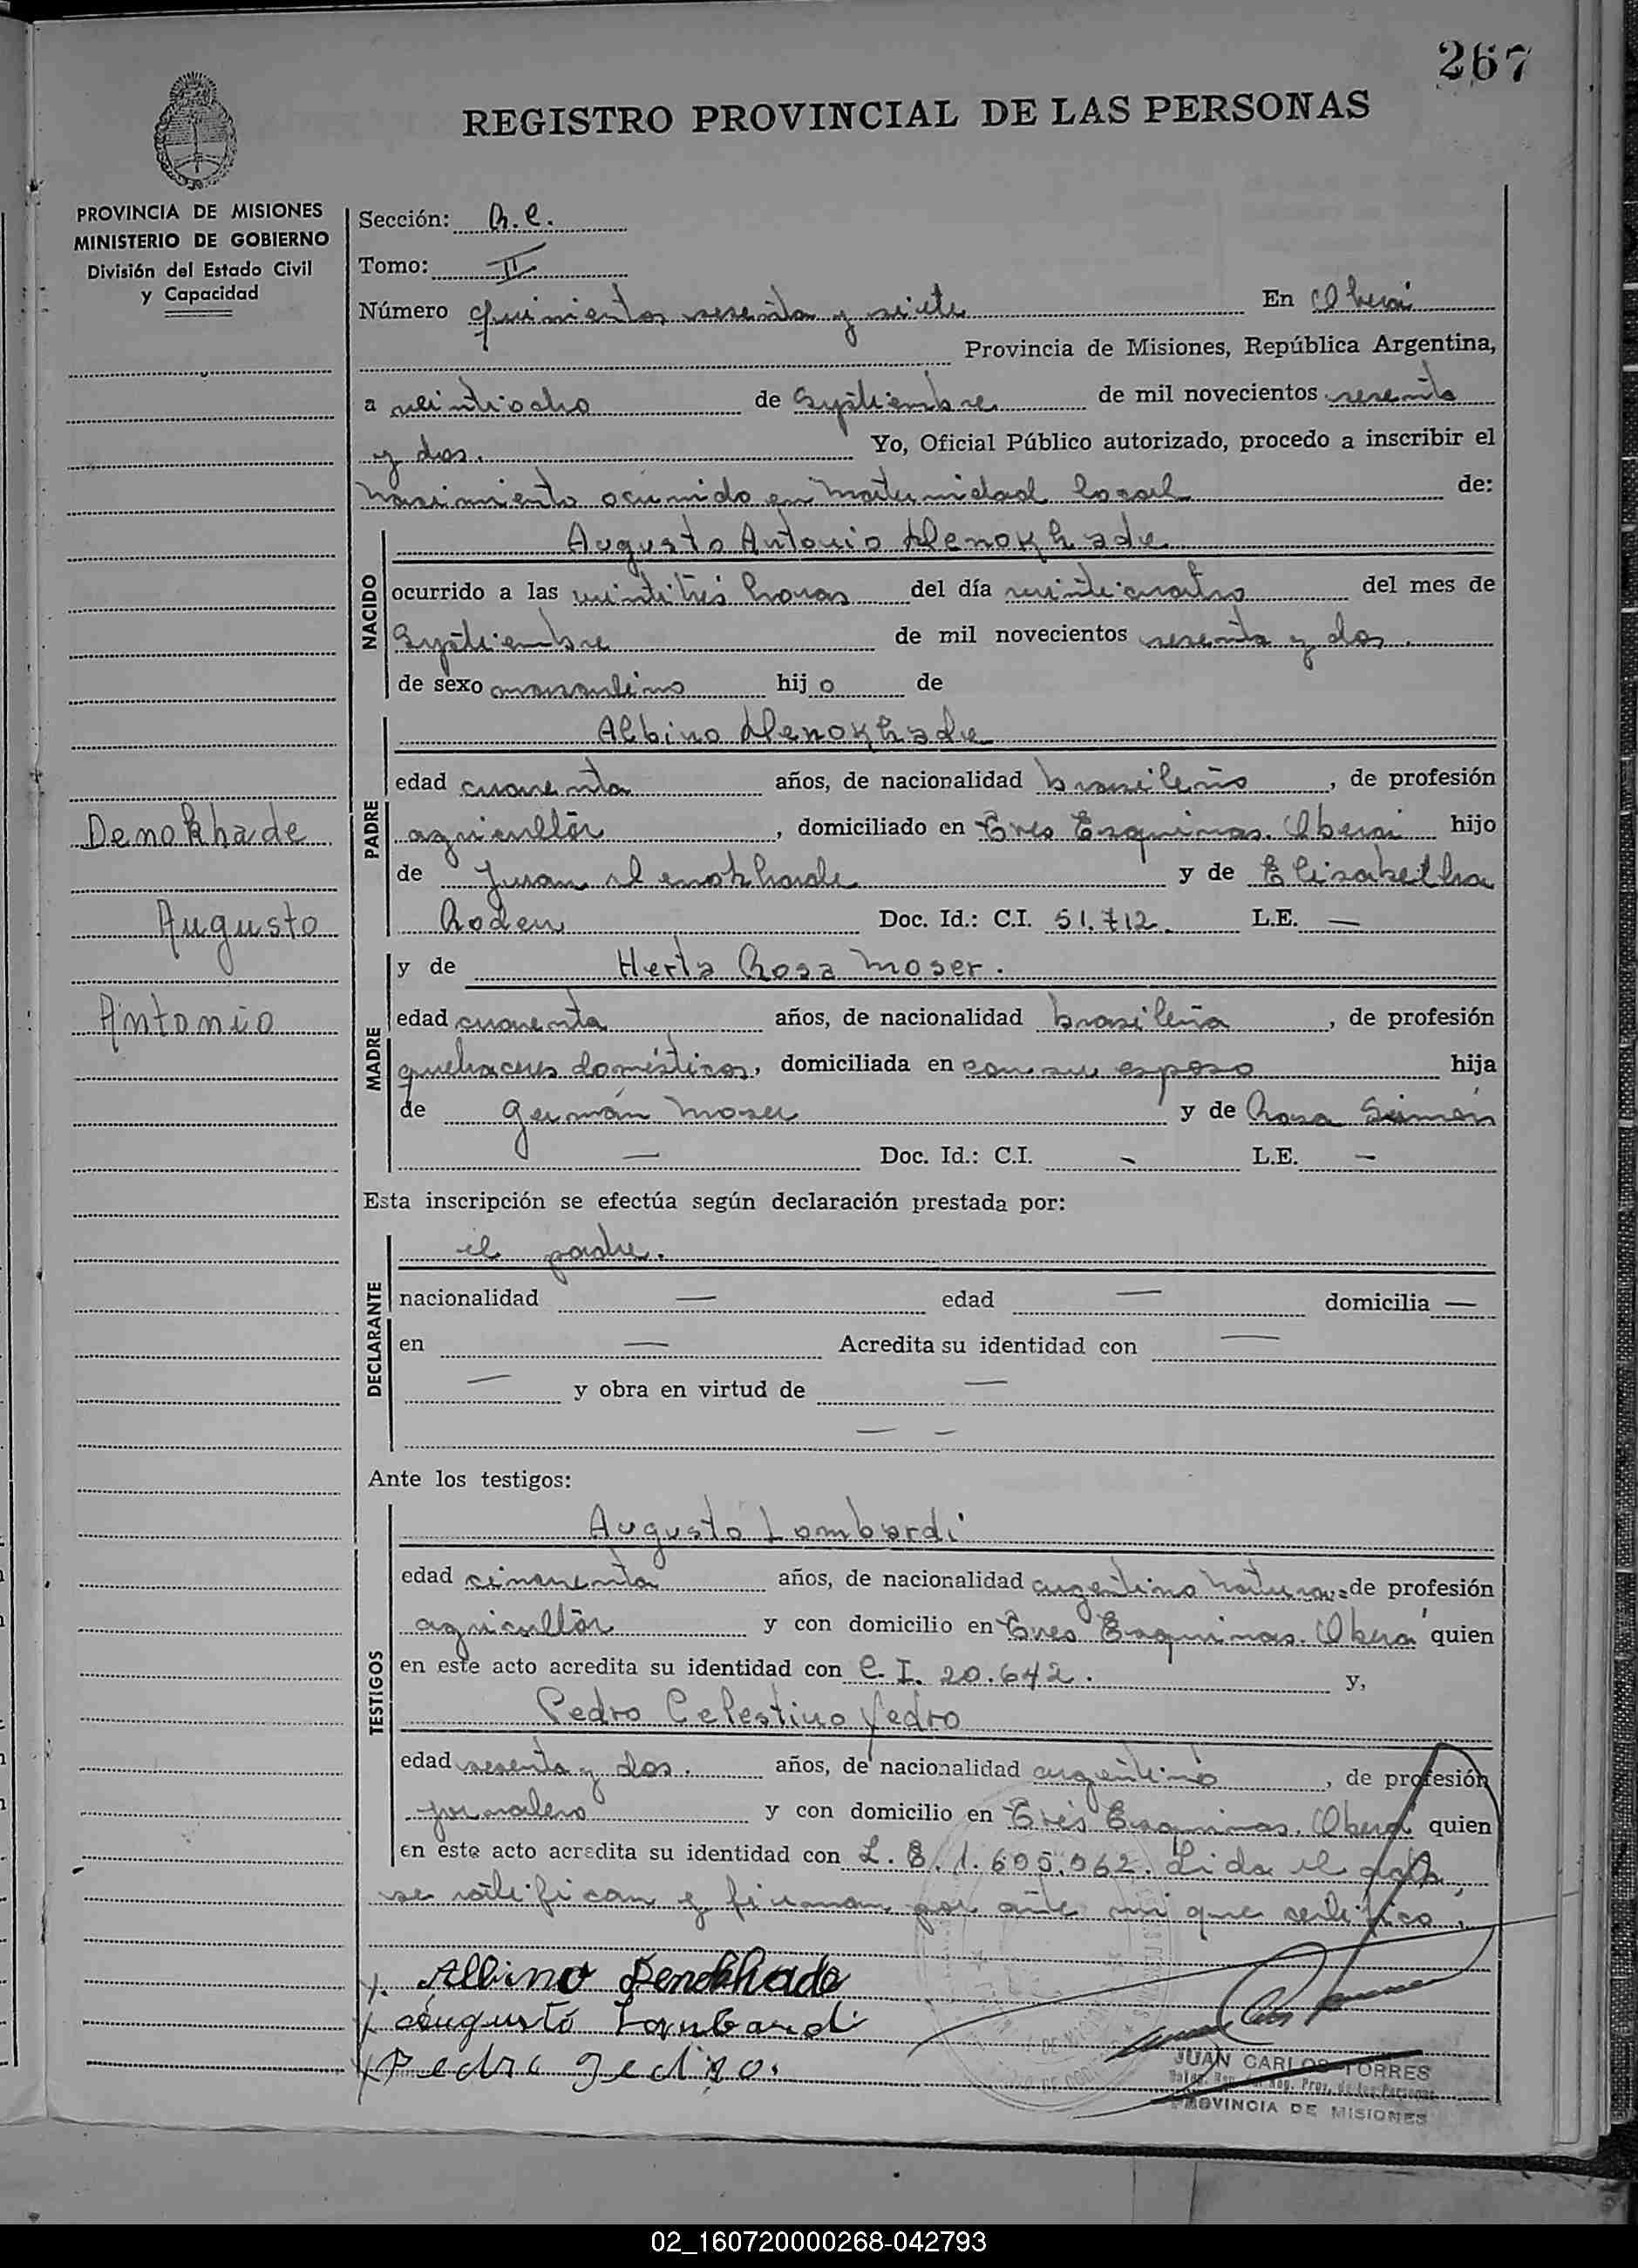 267
REGISTRO PROVINCIAL DE LAS PERSONAS
PROVINCIA DE MISIONES
MINISTERIO DE GOBIERNO
División del Estado Civil
y Capacidad
Sección:
Tomo: II
Número quinientos sesenta y siete En Oberá
Provincia de Misiones, República Argentina,
a veintiocho de Septiembre de mil novecientos sesenta
y dos. Yo, Oficial Público autorizado, procedo a inscribir el
nacimiento ocurrido en Maternidad local de:
NACIDO
Augusto Antonio Denokhade
ocurrido a las veintitrés horas del día veinticuatro del mes de
Septiembre de mil novecientos sesenta y dos.
de sexo masculino hijo de
PADRE
Albino Denokhade
edad cuarenta años, de nacionalidad brasileño, de profesión
agricultor, domiciliado en Tres Esquinas. Oberá hijo
de Juan Denokhade y de Elisabetha
Roden Doc. Id.: C.I. 51.712. L.E. —
MADRE
y de Herta Rosa Moser.
edad cuarenta años, de nacionalidad brasileña, de profesión
quehaceres domésticos, domiciliada en con su esposo hija
de Germán Moser y de Rosa Simón
— Doc. Id.: C.I. - L.E. -
Denokhade
Augusto
Antonio
Esta inscripción se efectúa según declaración prestada por:
DECLARANTE
el padre.
nacionalidad — edad — domicilia —
en — Acredita su identidad con —
— y obra en virtud de —
— —
Ante los testigos:
TESTIGOS
Augusto Lombardi
edad cincuenta años, de nacionalidad argentino natura= de profesión
agricultor y con domicilio en Tres Esquinas. Oberá quien
en este acto acredita su identidad con C. I. 20.642. y,
Pedro Celestino Yedro
edad sesenta y dos. años, de nacionalidad argentino, de profesión
jornalero y con domicilio en Tres Esquinas. Oberá quien
en este acto acredita su identidad con 1.605.062. Lida el acta,
se ratifican y firman por ante mi que certifico.
Albino Denokhade
Augusto Lombardi
Pedro Yedro.
JUAN CARLOS TORRES
PROVINCIA DE MISIONES
02_160720000268-042793